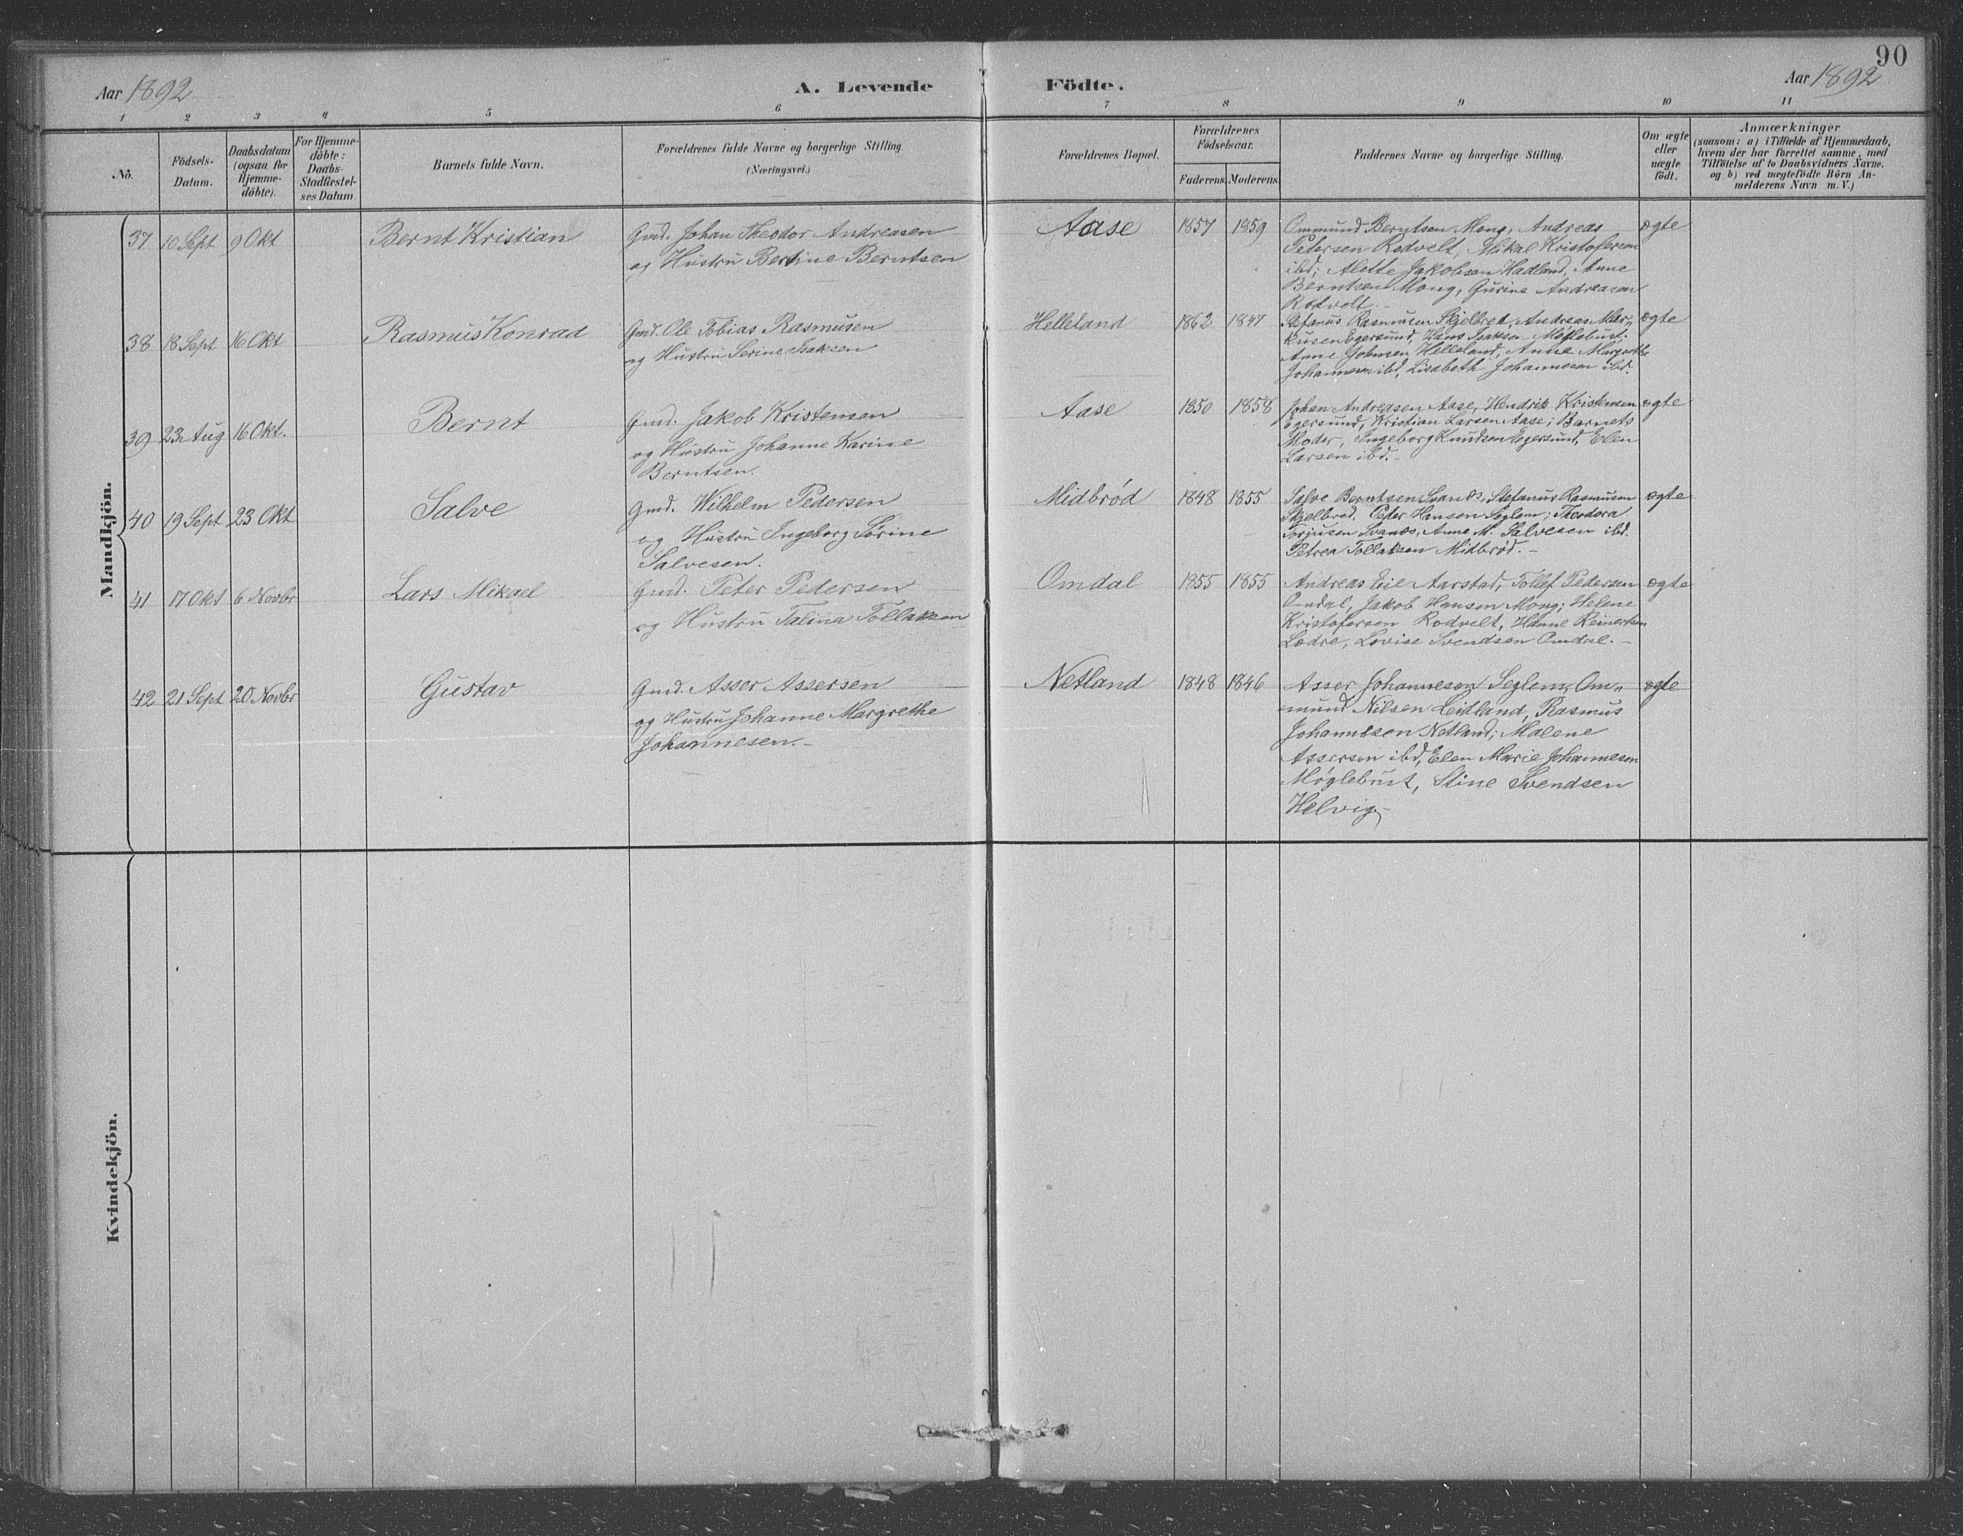 90
Aar 1892
A. Levende Födte.
Aar 1892
1 2 3 4 5 6 7 8 9 10 11
No.
Födsels-
Datum.
Daabsdatum
(ogsaa for
Hjemme-
döbte).
For Hjemme-
döbte:
Daabs-
Stadfæstel-
ses Datum
Barnets fulde Navn.
Forældrenes fulde Navne og borgerlige Stilling
(Næringsvei.)
Forældrenes Bopæl.
Forældrenes
Födselsaar.
Faderens. Moderens.
Faddernes Navne og borgerlige Stilling.
Om ægte
eller
uægte
födt.
Anmærkninger
(saasom: a) i Tilfælde af Hjemmedaab,
hvem der har forrettet samme, med
Tilföielse af to Daabsvidners Navne.
og b) ved uægtefödte Börn An-
melderens Navn m. V.)
Mandkjön.
37 10 Sept 9 Okt Bernt Kristian
Gmd. Johan Theodor Andreasen
og Hustru Bertine Berntsen
Aase 1857 1859
Ommund Berntsen Mong, Andreas
Petersen Rodvelt, Mikal Kristofersen
ibd; Alette Jakobsen Hadland, Anne
Berntsen Mong, Gurine Andreasen
Rodvelt.-
ægte
38 18 Sept 16 Okt Rasmus Konrad
Gmd. Ole Tobias Rasmusen
og Hustru Serine Isaksen
Helleland 1862 1847
Stefanus Rasmusen Skjelbred, Andreas Mar-
kusen Egersund, Hans Isaksen Møglebust;
Anne Johnsen Helleland, Anne Margrethe
Johannesen ibd, Lisabeth Johannesen ibd.
ægte
39 23 Aug 16 Okt. Bernt
Gmd. Jakob Kristensen
og Hustru Johanne Karine
Berntsen.
Aase 1850 1858
Johan Andreasen Aase, Hendrik Kristensen
Egersund, Kristian Larsen Aase; Barnets
Moder, Ingeborg Knudsen Egersund, Elen
Larsen ibd.-
ægte
40 19 Sept 23 Okt Salve
Gmd. Wilhelm Pedersen
og Hustru Ingeborg Serine
Salvesen.
Midbrød 1848 1855
Salve Berntsen Svanes, Stefanus Rasmusen
Skjelbred, Peter Hansen Seglem; Theodora
Torjusen Svanes, Anne M. Salvesen ibd.
Petrea Tollaksen Midbrød.-
ægte
41 17 Okt 6 Novbr Lars Mikael
Gmd. Peter Pedersen
og Hustru Talina Tollaksen
Omdal 1855 1855
Andreas Eie Aarstad, Tollef Pedersen
Omdal, Jakob Hansen Mong; Helene
Kristofersen Rodvelt, Hanne Reinertsen
Lædre, Lovise Svendsen Omdal.-
ægte
42 21 Sept 20 Novbr Gustav
Gmd. Asser Assersen
og Hustru Johanne Margrethe
Johannesen.-
Netland 1848 1846
Asser Johannesen Seglem, Om-
mund Nilsen Leidland, Rasmus
Johannesen Netland; Malene
Assersen ibd, Elen Marie Johannesen
Møglebust, Stine Svendsen
Helvig.
ægte
Kvindekjön.